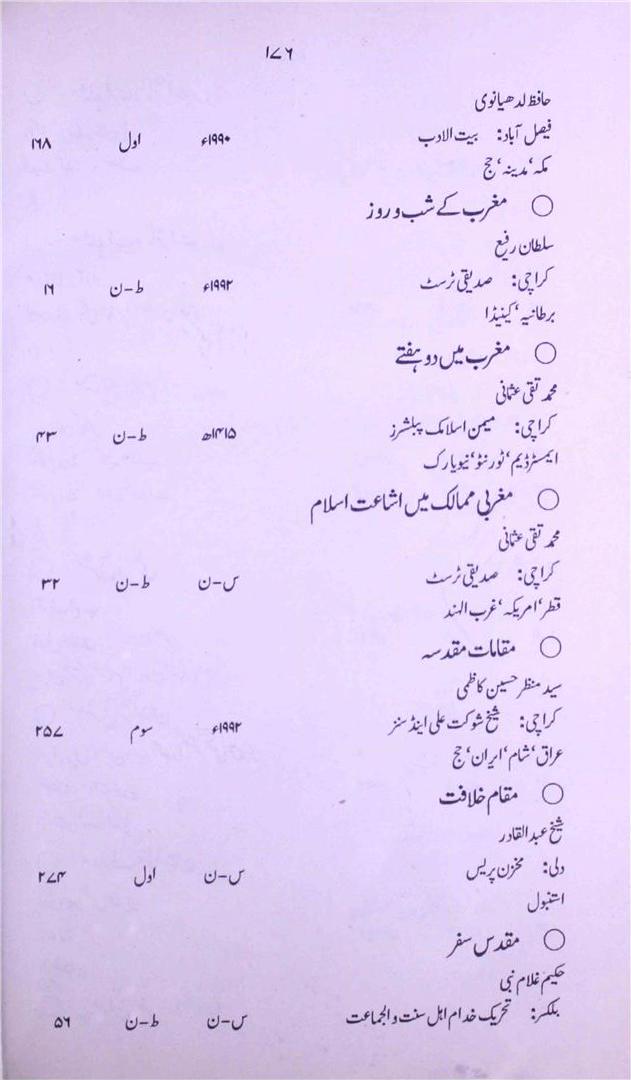 ۱۷۶
حافظ لدھیانوی
فیصل آباد: بیت الادب ۱۹۹۰ء اول ۱۶۸
مکہ، مدینہ، حج
○ مغرب کے شب و روز
سلطان رفیع
کراچی: صدیقی ٹرسٹ ۱۹۹۲ء ط-ن ۱۶
برطانیہ، کینیڈا
○ مغرب میں دو ہفتے
محمد تقی عثمانی
کراچی: میمن اسلامک پبلشرز ۱۴۱۵ھ ط-ن ۴۳
ایمسٹرڈیم، ٹورنٹو، نیویارک
○ مغربی ممالک میں اشاعت اسلام
محمد تقی عثمانی
کراچی: صدیقی ٹرسٹ س-ن ط-ن ۳۲
قطر، امریکہ، غرب الہند
○ مقامات مقدسہ
سید منظر حسین کاظمی
کراچی: شیخ شوکت علی اینڈ سنز ۱۹۹۲ء سوم ۲۵۷
عراق، شام، ایران، حج
○ مقام خلافت
شیخ عبد القادر
دلی: مخزن پریس س-ن اول ۲۷۴
استنبول
○ مقدس سفر
حکیم غلام نبی
بلکسر: تحریک خدام اہل سنت و الجماعت س-ن ط-ن ۵۶